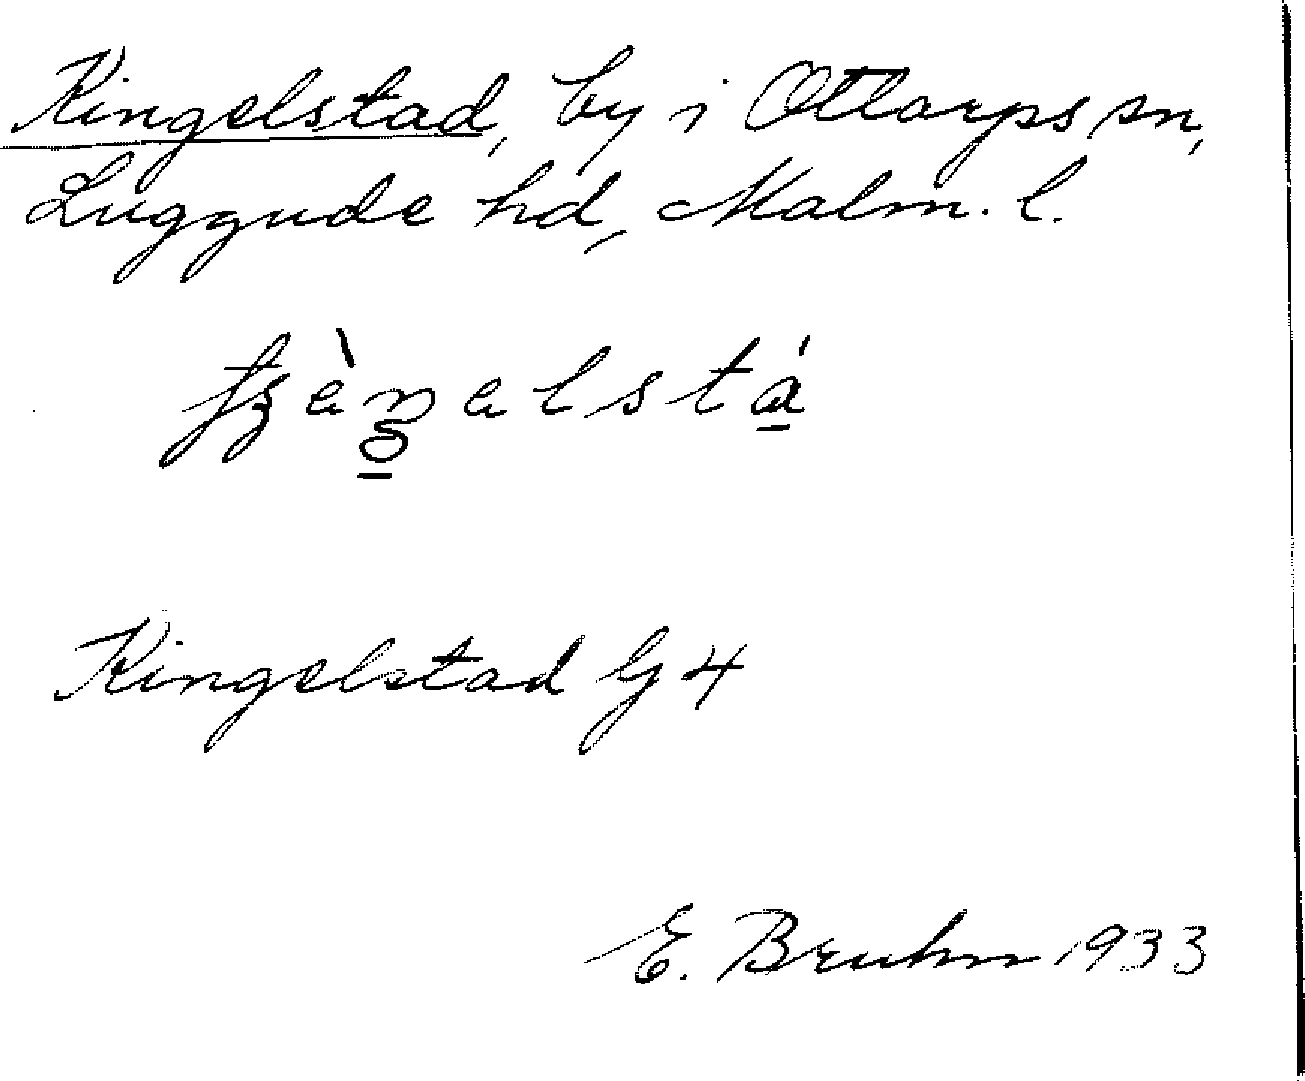 Kingelstad, by i Ottarps sn,
Luggude hd, Malm. l.
Kingelstad G 4
E. Bruhn 1933